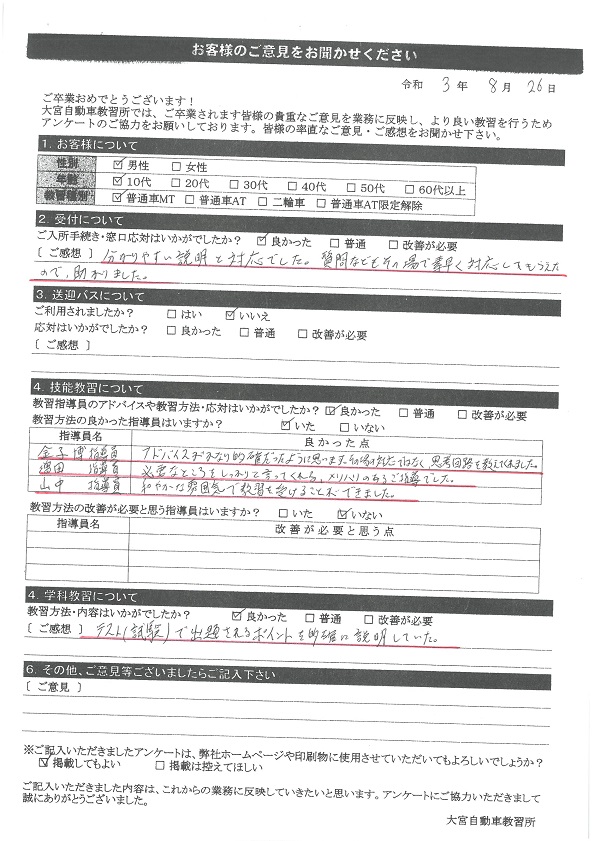 お客様のご意見をお聞かせください
令和 3 年 8 月 26 日
ご卒業おめでとうございます！
大宮自動車教習所では、ご卒業されます皆様の貴重なご意見を業務に反映し、より良い教習を行うため
アンケートのご協力をお願いしております。皆様の率直なご意見・ご感想をお聞かせ下さい。
1. お客様について
性別 ☑男性 □女性
年齢 ☑10代 □20代 □30代 □40代 □50代 □60代以上
教習種別 ☑普通車MT □普通車AT □二輪車 □普通車AT限定解除
2. 受付について
ご入所手続き・窓口応対はいかがでしたか？ ☑良かった □普通 □改善が必要
〔ご感想〕 分かりやすい説明と対応でした。質問などもその場で素早く対応してもらえた
ので、助かりました。
3. 送迎バスについて
ご利用されましたか？ □はい ☑いいえ
応対はいかがでしたか？ □良かった □普通 □改善が必要
〔ご感想〕
4. 技能教習について
教習指導員のアドバイスや教習方法・応対はいかがでしたか？ ☑良かった □普通 □改善が必要
教習方法の良かった指導員はいますか？ ☑いた □いない
指導員名 良かった点
金子博指導員 アドバイスがかなり的確だったように思います。その場の対応ではなく、思考回路を教えてくれました。
濱田 指導員 必要なところをしっかりと言ってくれる、メリハリのあるご指導でした。
山中 指導員 和やかな雰囲気で教習を受けることができました。
教習方法の改善が必要と思う指導員はいますか？ □いた ☑いない
指導員名 改善が必要と思う点
4. 学科教習について
教習方法・内容はいかがでしたか？ ☑良かった □普通 □改善が必要
〔ご感想〕 テスト(試験)で出題されるポイントを的確に説明していた。
6. その他、ご意見等ございましたらご記入下さい
〔ご意見〕
※ご記入いただきましたアンケートは、弊社ホームページや印刷物に使用させていただいてもよろしいでしょうか？
☑掲載してもよい □掲載は控えてほしい
ご記入いただきました内容は、これからの業務に反映していきたいと思います。アンケートにご協力いただきまして
誠にありがとうございました。
大宮自動車教習所